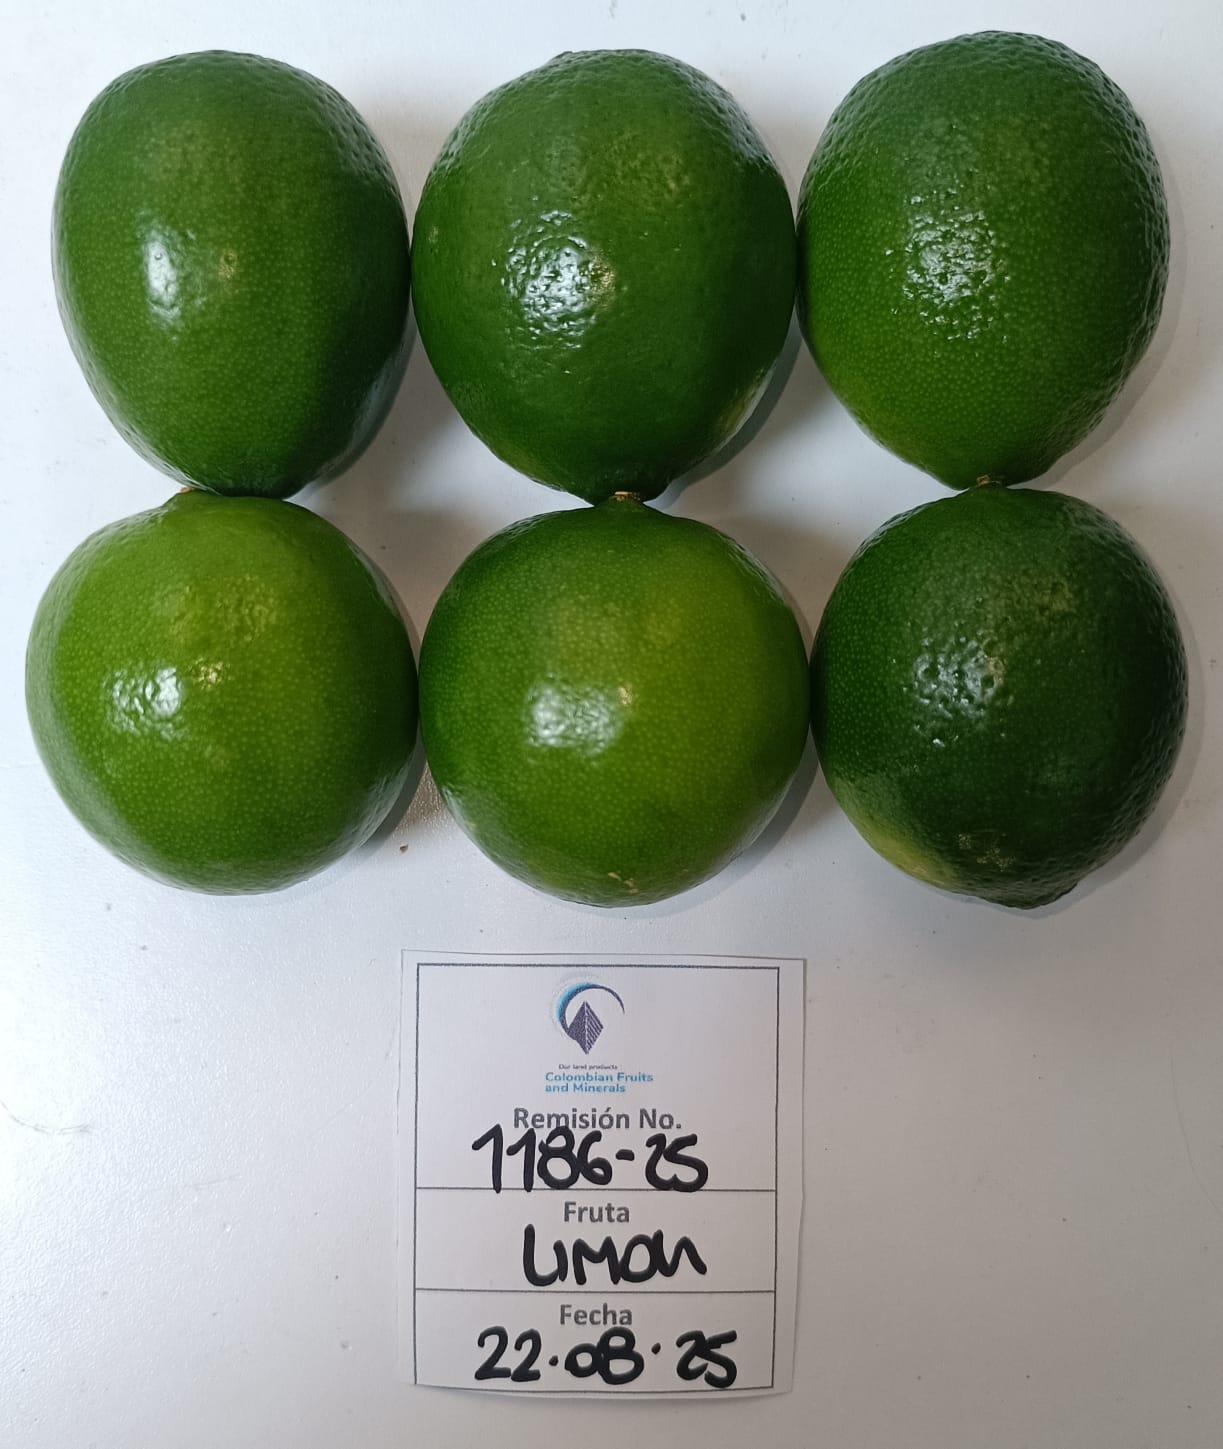 Our land products
Colombian Fruits
and Minerals
Remisión No.
1186-25
Fruta
LIMON
Fecha
22.08.25